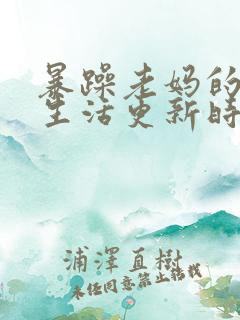 暴躁老妈的
生活更新时
浦澤直樹
未经同意禁止转载